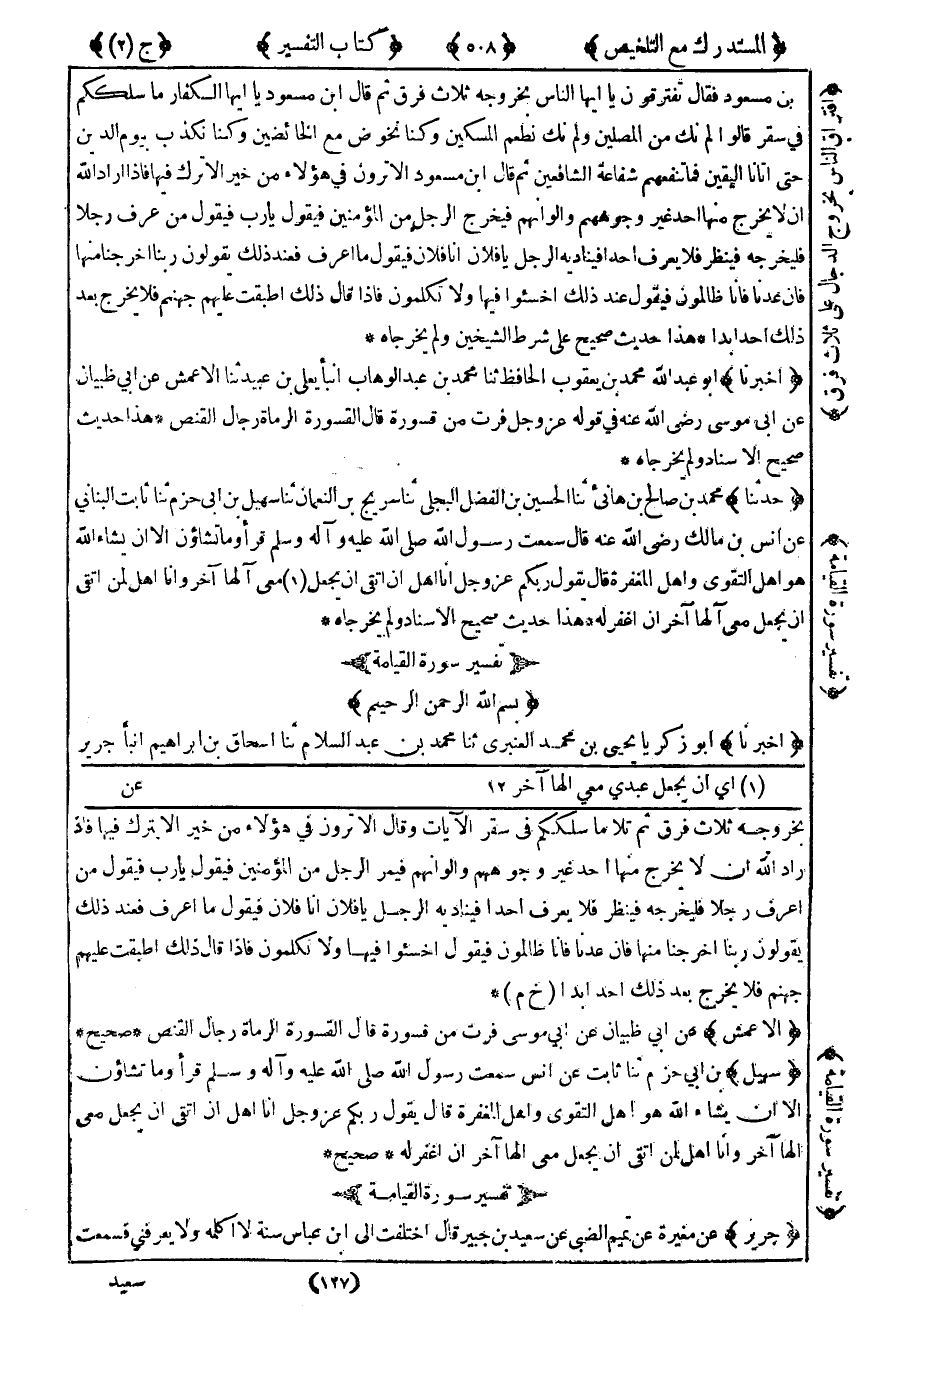 ﴿ المستدرك مع التلخيص ﴾ ﴿ ٥٠٨ ﴾ ﴿ كتاب التفسير ﴾ ﴿ ج (٢) ﴾
بن مسعود فقال تفترقون يا ايها الناس بخروجه ثلاث فرق ثم قال ابن مسعود يا ايها الكفار ما سلككم
فى سقر قالوا لم نك من المصلين ولم نك نطعم المسكين وكنا نخوض مع الخائضين وكنا نكذب بيوم الدين
حتى اتانا اليقين فما تنفعهم شفاعة الشافعين ثم قال ابن مسعود الاترون في هؤلاء من خير الاترك فيها فاذا اراد الله
ان لا يخرج منها احد غير وجوههم والوانهم فيخرج الرجل من المؤمنين فيقول يارب فيقول من عرف رجلا
فليخرجه فينظر فلا يعرف احدا فيناديه الرجل يافلان انا فلان فيقول ما اعرف فعند ذلك يقولون ربنا اخرجنا منها
فان عدنا فانا ظالمون فيقول عند ذلك اخسئوا فيها ولا تكلمون فاذا قال ذلك اطبقت عليهم جهنم فلا يخرج بعد
ذلك احد ابدا * هذا حديث صحيح على شرط الشيخين ولم يخرجاه *
﴿ اخبرنا ﴾ ابو عبد الله محمد بن يعقوب الحافظ ثنا محمد بن عبد الوهاب انبأ يعلى بن عبيد ثنا الاعمش عن ابي ظبيان
عن ابى موسى رضى الله عنه في قوله عز وجل فرت من قسورة قال القسورة الرماة رجال القنص * هذا حديث
صحيح الاسناد ولم يخرجاه *
﴿ حدثنا ﴾ محمد بن صالح بن هانىٔ ثنا الحسين بن الفضل البجلي ثنا سريج بن النعمان ثنا سهيل بن ابى حزم ثنا ثابت البناني
عن انس بن مالك رضى الله عنه قال سمعت رسول الله صلى الله عليه وآله وسلم قرأ وما تشاؤن الا ان يشاء الله
هو اهل التقوى واهل المغفرة قال يقول ربكم عز وجل انا اهل ان اتقى ان يجعل (١) معى آلها آخر وانا اهل لمن اتقى
ان يجعل معى آلها آخر ان اغفر له * هذا حديث صحيح الاسناد ولم يخرجاه *
تفسير سورة القيامة
﴿ بسم الله الرحمن الرحيم ﴾
﴿ اخبرنا ﴾ ابو زكريا يحيى بن محمد العنبرى ثنا محمد بن عبد السلام ثنا اسحاق بن ابراهيم انبأ جرير
(١) اي ان يجعل عبدي معي الها آخر ١٢ عن
بخروجه ثلاث فرق ثم تلا ما سلككم فى سقر الآيات وقال الاترون في هؤلاء من خير الا يترك فيها فاذ
راد الله ان لا يخرج منها احد غير وجوههم والوانهم فيمر الرجل من المؤمنين فيقول يارب فيقول من
اعرف رجلا فليخرجه فينظر فلا يعرف احدا فيناديه الرجل يافلان انا فلان فيقول ما اعرف فعند ذلك
يقولون ربنا اخرجنا منها فان عدنا فانا ظالمون فيقول اخسئوا فيها ولا تكلمون فاذا قال ذلك اطبقت عليهم
جهنم فلا يخرج بعد ذلك احد ابدا (خ م) *
﴿ الاعمش ﴾ عن ابي ظبيان عن ابي موسى فرت من قسورة قال القسورة الرماة رجال القنص * صحيح *
﴿ سهيل ﴾ بن ابي حزم ثنا ثابت عن انس سمعت رسول الله صلى الله عليه وآله وسلم قرأ وما تشاؤن
الا ان يشاء الله هو اهل التقوى واهل المغفرة قال يقول ربكم عز وجل انا اهل ان اتقى ان يجعل معى
الها آخر وانا اهل لمن اتقى ان يجعل معى الها آخر ان اغفر له * صحيح *
تفسير سورة القيامة
﴿ جرير ﴾ عن مغيرة عن تميم الضبى عن سعيد بن جبير قال اختلفت الى ابن عباس سنة لا اكلمه ولا يعرفني فسمعت
(١٢٧) سعيد
﴿ افتراق الناس بخروج الدجال على ثلاث فرق ﴾
﴿ تفسير سورة القيامة ﴾
﴿ تفسير سورة القيامة ﴾